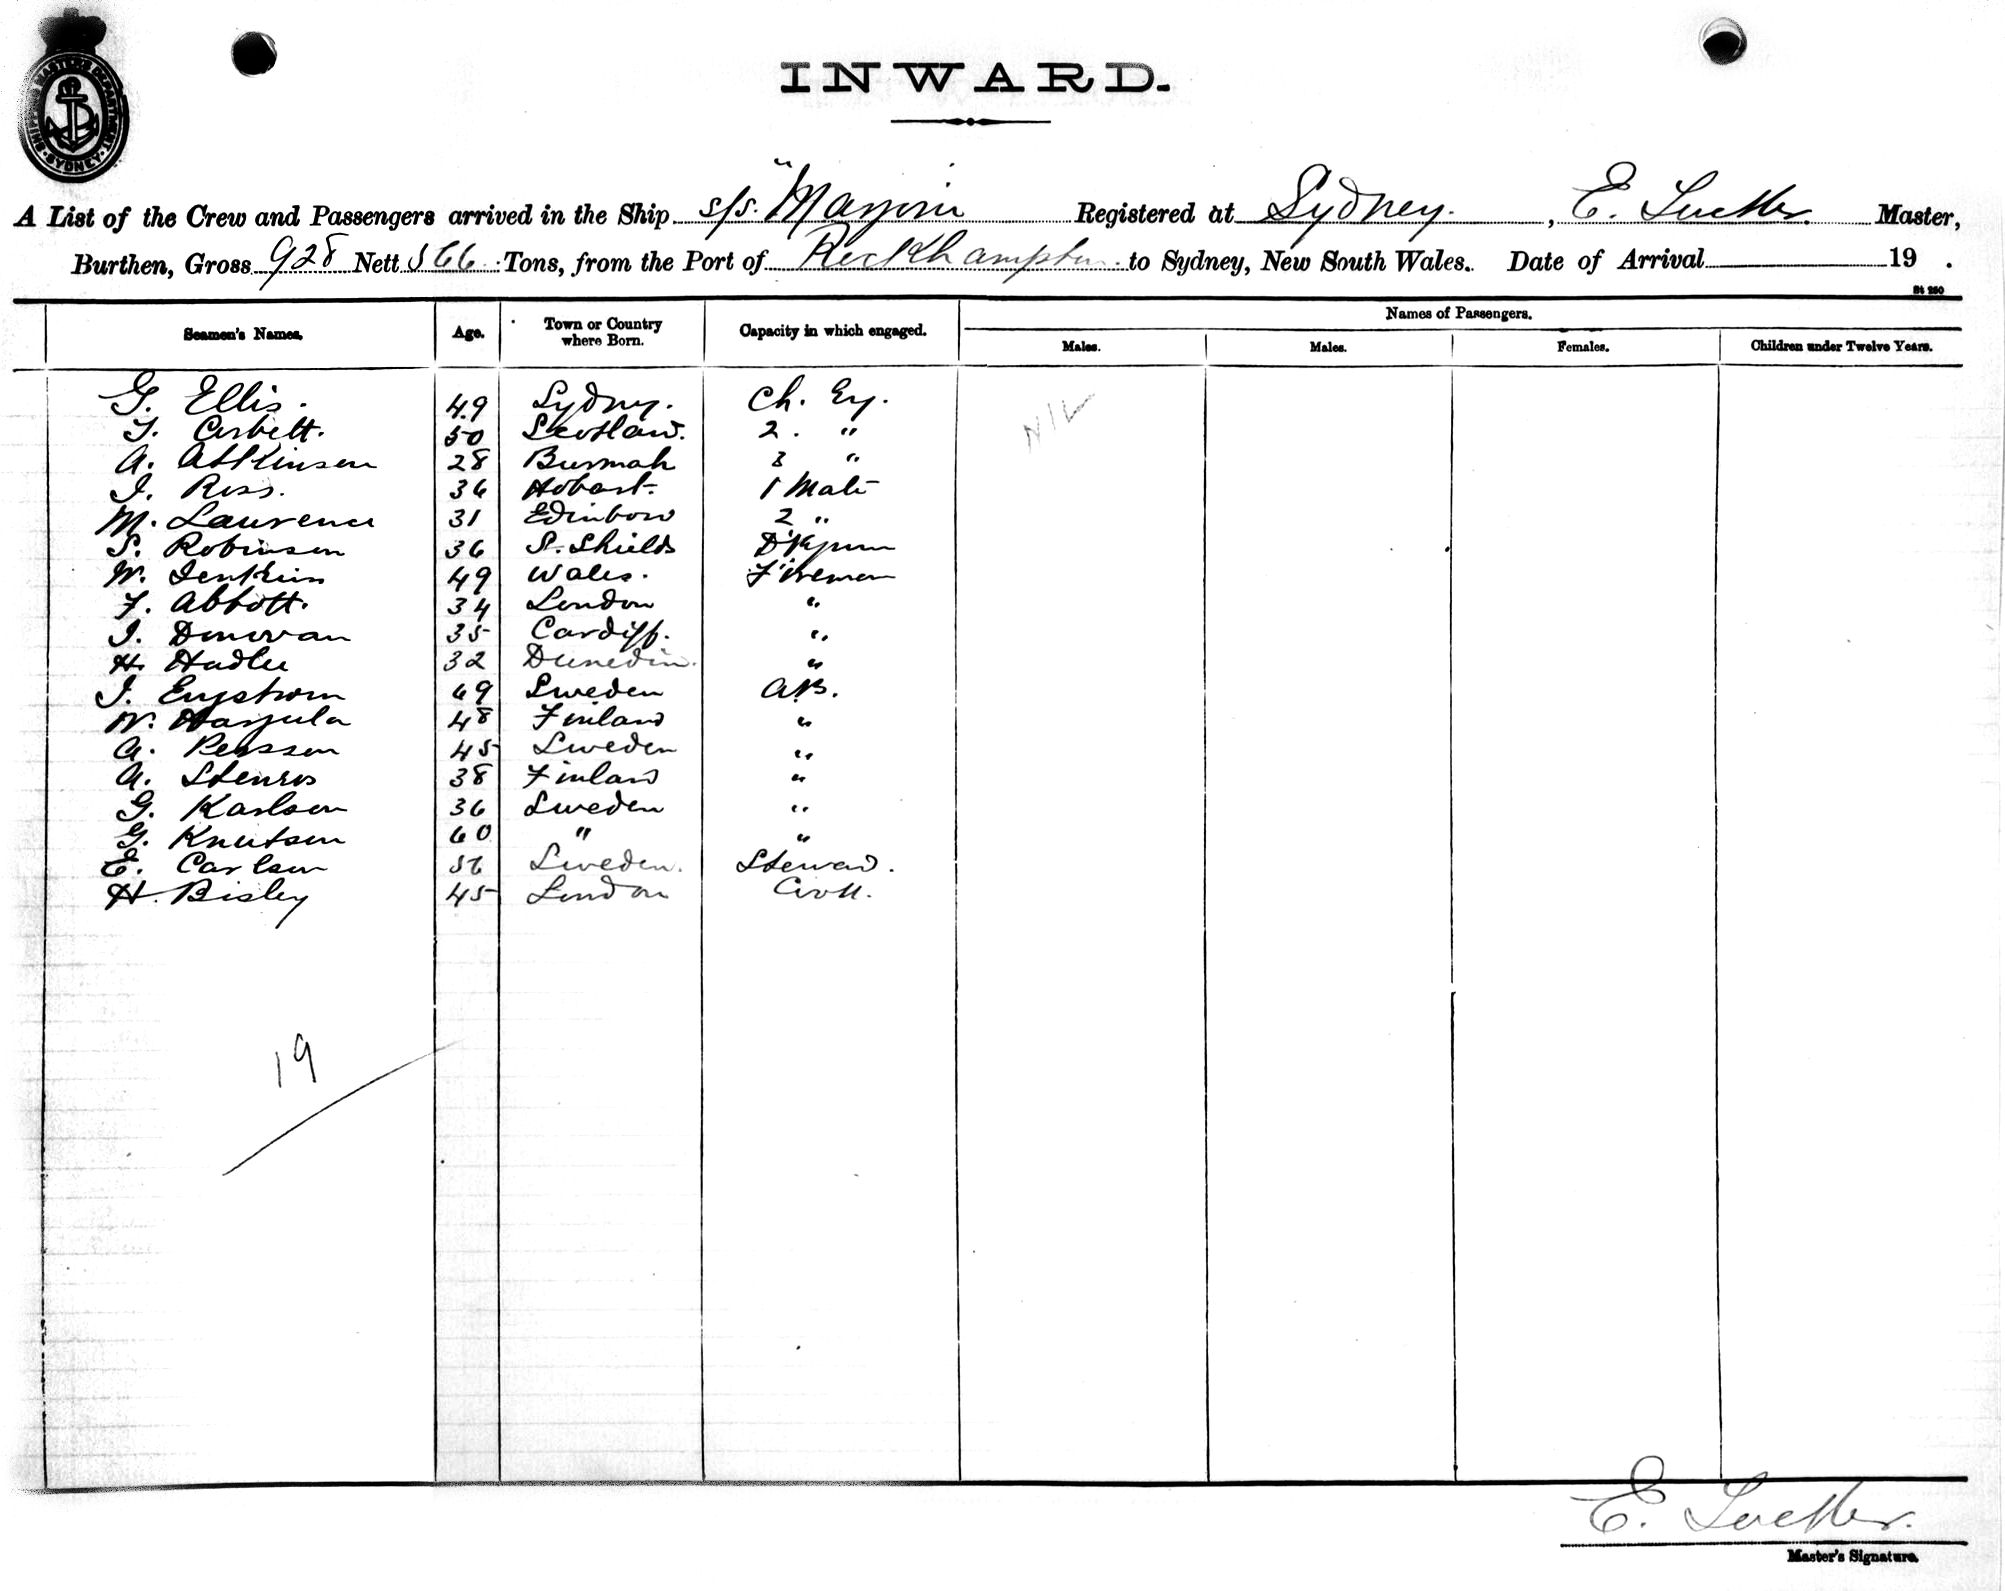 SHIPPING MASTER'S DEPARTMENT SYDNEY
INWARD.
A List of the Crew and Passengers arrived in the Ship s/s. "Marjorie Registered at Sydney. , E. Master,
Burthen, Gross 928 Nett 566 Tons, from the Port of Rockhampton to Sydney, New South Wales. Date of Arrival 19 .
St 260
Seamen's Names. Age. Town or Country where Born. Capacity in which engaged. Names of Passengers.
Males. Males. Females. Children under Twelve Years.
G. Ellis. 49 Sydney. Ch. Eg. NIL
T. Corbett. 50 Scotland. 2. "
A. Atkinson 28 Burmah 3 "
J. Ross. 36 Hobart. 1 Mate
M. Laurence 31 Edinboro 2 "
S. Robinson 36 S. Shields
W. Jenkins 49 Wales. Fireman
F. Abbott. 34 London "
J. Donovan 35 Cardiff. "
H. Hadlee 32 Dunedin. "
J. Engstrom 49 Sweden A.B.
W. Harjula 48 Finland "
A. Persson 45 Sweden "
A. Stenros 38 Finland "
G. Karlson 36 Sweden "
G. Knutsen 60 " "
E. Carlson 56 Sweden. Steward.
H. Bisley 45 London Cook.
19
E.
Master's Signature.